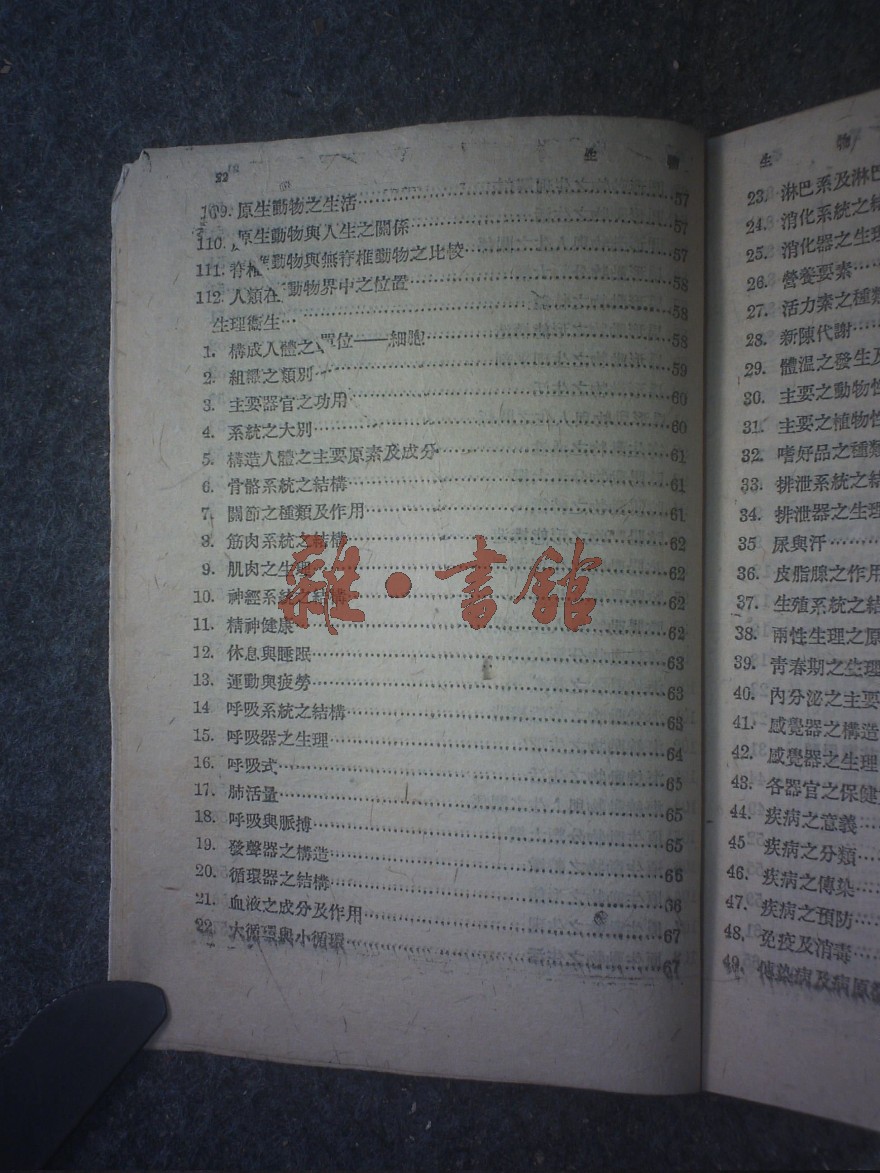 22
生 物
109. 原生動物之生活 57
110. 原生動物與人生之關係 57
111. 脊椎動物與無脊椎動物之比較 57
112. 人類在動物界中之位置 58
生理衞生 58
1. 構成人體之單位——細胞 58
2. 組織之類別 59
3. 主要器官之功用 60
4. 系統之大別 60
5. 構造人體之主要原素及成分 61
6. 骨骼系統之結構 61
7. 關節之種類及作用 61
8. 筋肉系統之結構 62
9. 肌肉之生理 62
10. 神經系統之結構 62
11. 精神健康 62
12. 休息與睡眠 63
13. 運動與疲勞 63
14 呼吸系統之結構 63
15. 呼吸器之生理 64
16. 呼吸式 65
17. 肺活量 65
18. 呼吸與脈搏 65
19. 發聲器之構造 66
20. 循環器之結構 66
21. 血液之成分及作用 67
22. 大循環與小循環 67
雜·書館
生 物
23. 淋巴系及淋巴
24. 消化系統之結
25. 消化器之生理
26. 營養要素
27. 活力素之種類
28. 新陳代謝
29. 體温之發生及
30. 主要之動物性
31. 主要之植物性
32. 嗜好品之種類
33. 排泄系統之結
34. 排泄器之生理
35 尿與汗
36. 皮脂腺之作用
37. 生殖系統之結
38. 兩性生理之原
39. 靑春期之生理
40. 內分泌之主要
41. 感覺器之構造
42. 感覺器之生理
43. 各器官之保健
44. 疾病之意義
45 疾病之分類
46. 疾病之傳染
47. 疾病之預防
48. 免疫及消毒
49. 傳染病及病原